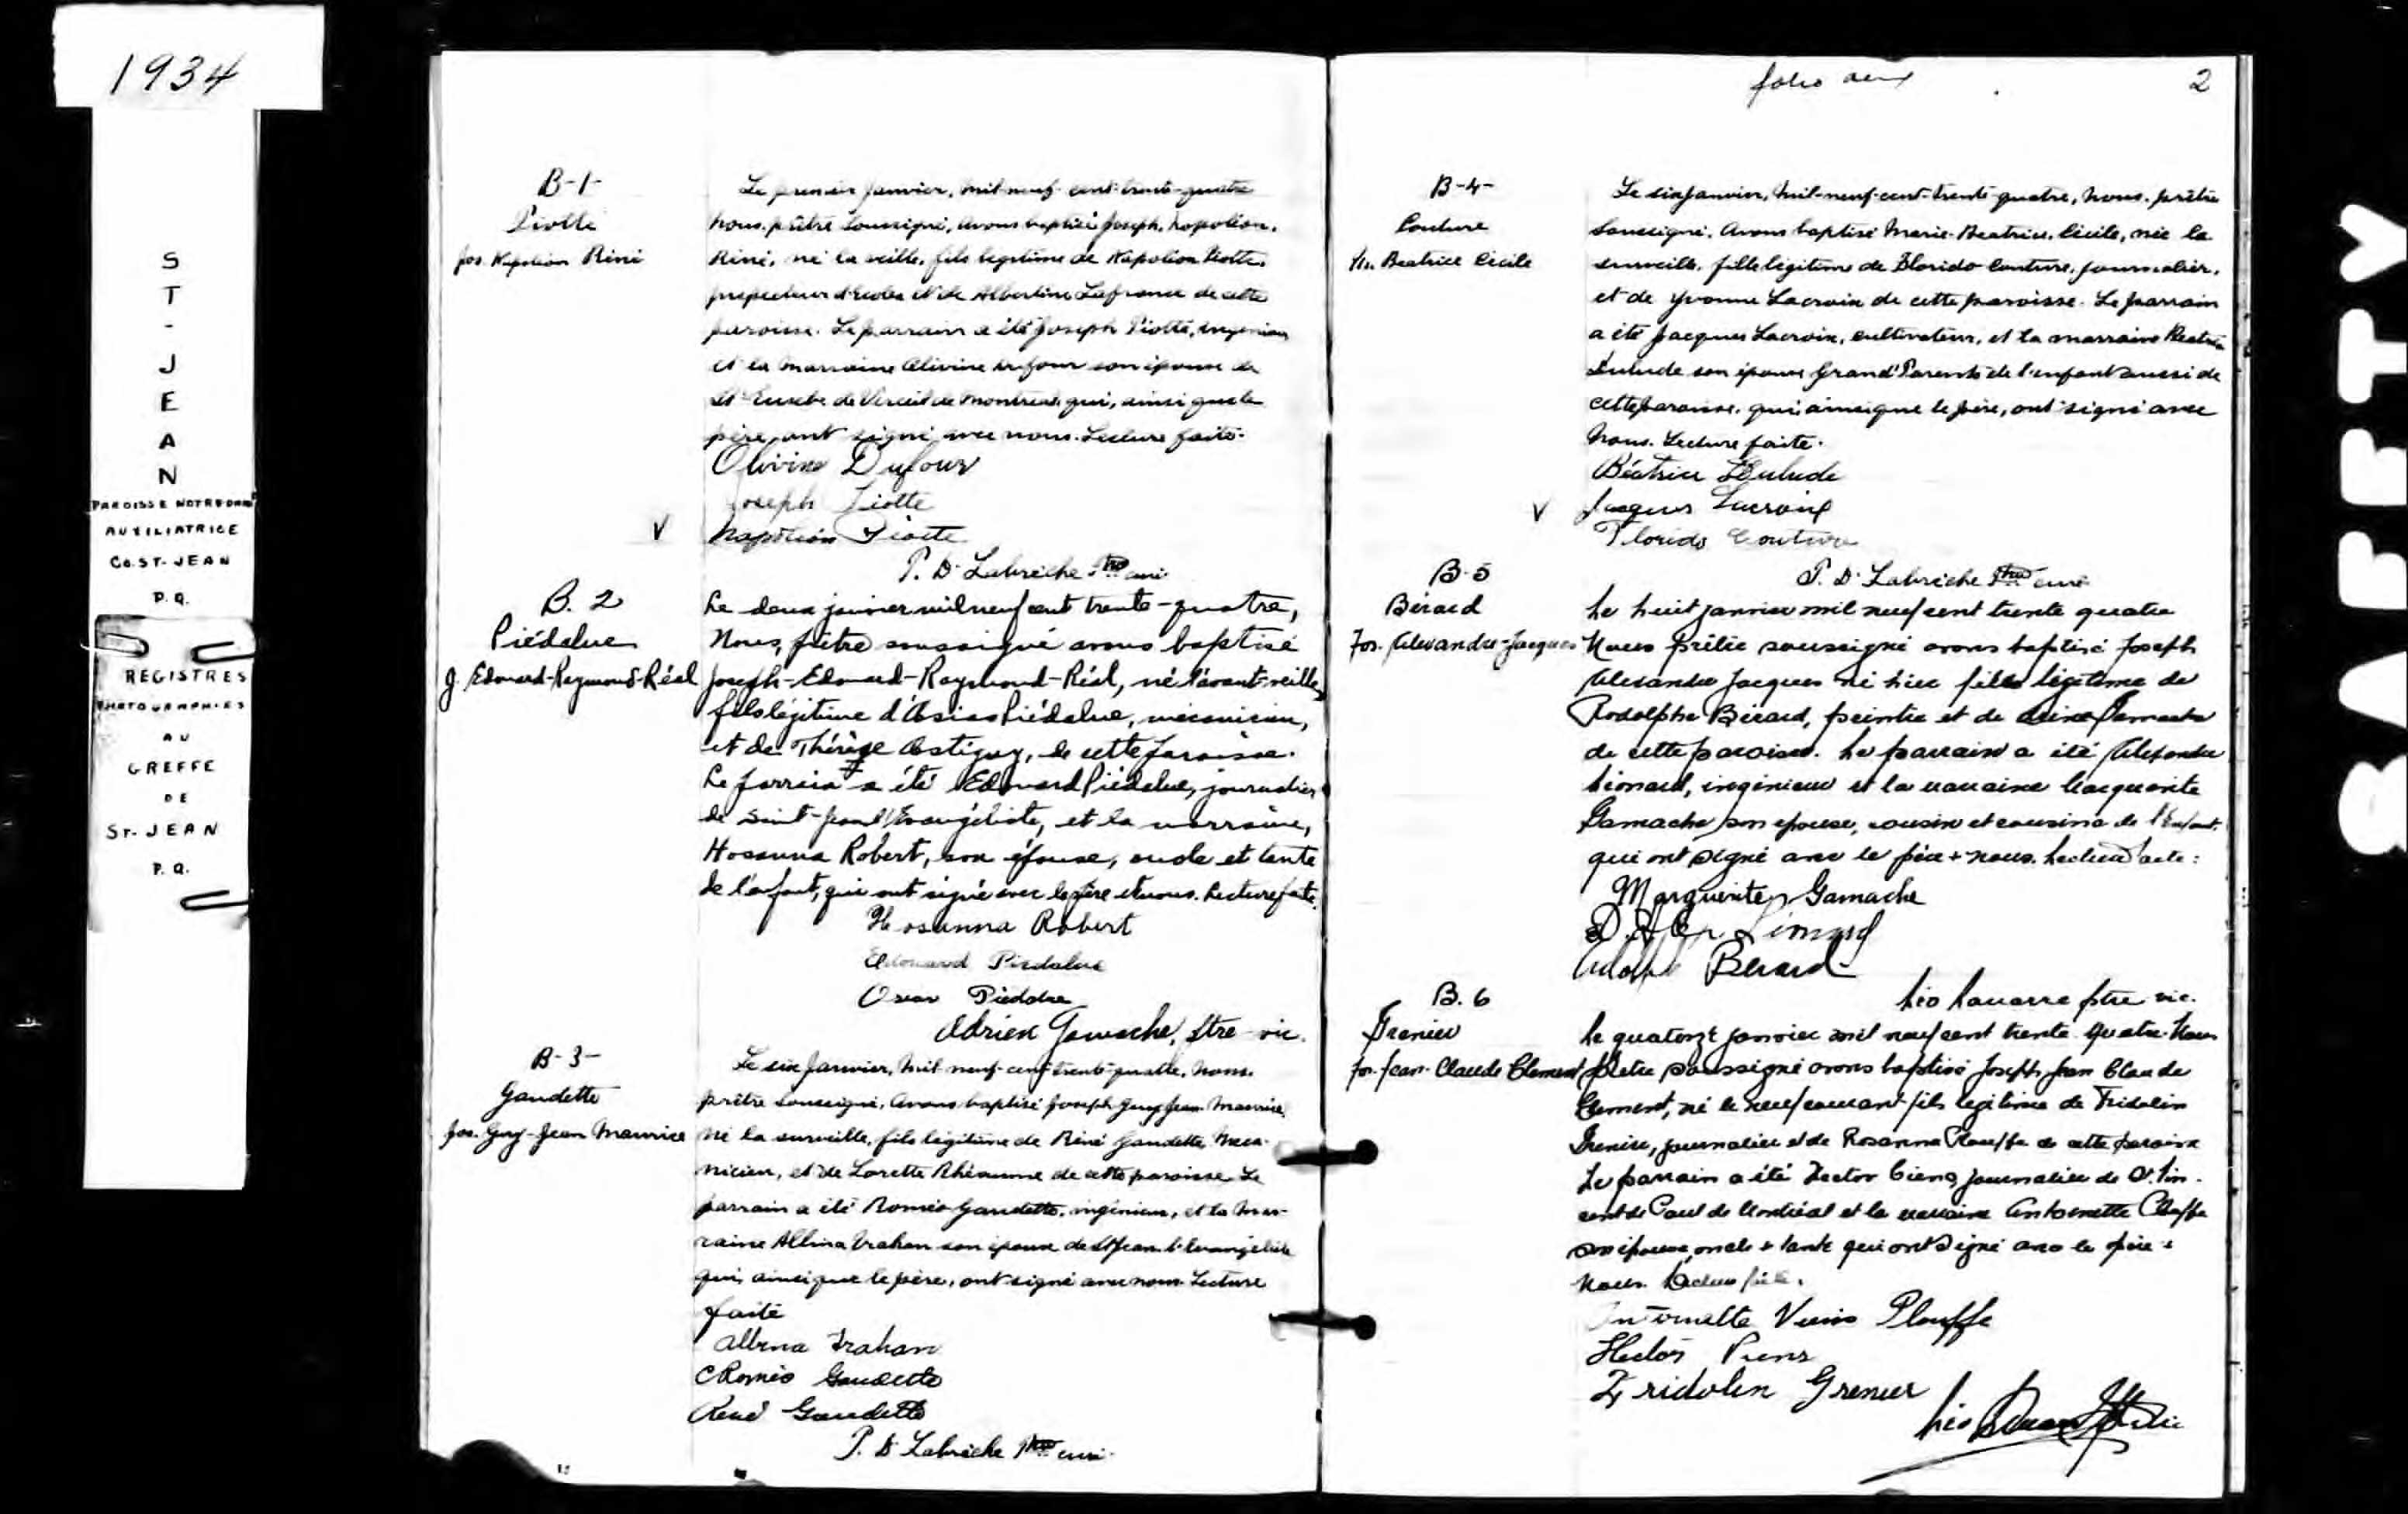 1934
S
T
-
J
E
A
N
PAROISSE NOTRE DAME
AUXILIATRICE
Co. ST-JEAN
P.Q.
REGISTRES
PHOTOGRAPHIES
AU
GREFFE
DE
ST-JEAN
P.Q.
B-1-
Piotte
Jos. Napoléon René
Le premier janvier, mil-neuf-cent-trente-quatre
nous, prêtre soussigné, avons baptisé Joseph, Napoléon,
René, né la veille, fils légitime de Napoléon Piotte,
et de Albertine Lafrance de cette
paroisse. Le parrain a été Joseph Piotte, ingénieur
et la marraine Olivine Dufour son épouse de
St Eusèbe de Verceil de Montréal qui, ainsi que le
père, ont signé avec nous. Lecture faite.
Olivine Dufour
Joseph Piotte
V Napoléon Piotte
P. D. Labrèche Ptre curé
B. 2
Piédalue
J. Edouard-Raymond-Réal
Le deux janvier mil neuf cent trente-quatre,
Nous, prêtre soussigné avons baptisé
Joseph-Edouard-Raymond-Réal, né l'avant-veille,
fils légitime d' Piédalue, mécanicien,
et de Thérèse Ostiguy, de cette paroisse.
Le parrain a été Edouard Piédalue, journalier
de Saint-Jean l'Evangéliste, et la marraine,
Hosanna Robert, son épouse, oncle et tante
de l'enfant, qui ont signé avec le père et nous. Lecture faite.
Hosanna Robert
Edouard Piedalue
Piedalue
Adrien Gamache, ptre-vic.
B-3-
Gaudette
Jos. Guy-Jean Maurice
Le six janvier, mil neuf-cent trente-quatre, nous,
prêtre soussigné, avons baptisé Joseph Guy Jean Maurice
né la surveille, fils légitime de René Gaudette, méca-
nicien, et de Lorette Rhéaume de cette paroisse. Le
parrain a été Roméo Gaudette, ingénieur, et la mar-
raine Albina Trahan son épouse de St Jean l'Evangéliste
qui, ainsi que le père, ont signé avec nous. Lecture
faite
Albina Trahan
Roméo Gaudette
René Gaudette
P. D. Labrèche Ptre curé
folio deux
2
B-4-
Couture
M. Beatrice Cécile
Le six janvier, mil-neuf-cent-trente-quatre, nous, prêtre
soussigné, avons baptisé Marie-Beatrice, Cécile, née la
surveille, fille légitime de Florido Couture, journalier,
et de Yvonne Lacroix de cette paroisse. Le parrain
a été Jacques Lacroix, cultivateur, et la marraine Beatrice
Dulude son épouse Grand'Parents de l'enfant aussi de
cette paroisse, qui, ainsi que le père, ont signé avec
nous. Lecture faite.
Béatrice Dulude
V Jacques Lacroix
Florido Couture
P. D. Labrèche Ptre curé
B-5
Bérard
Jos. Alexandre-Jacques
Le huit janvier mil neuf cent trente quatre
Nous prêtre soussigné avons baptisé Joseph
Alexandre Jacques né hier fils légitime de
Rodolphe Bérard, peintre et de Gamache
de cette paroisse. Le parrain a été Alexandre
Léonard, ingénieur et la marraine Marguerite
Gamache son épouse, cousin et cousine de l'Enfant.
qui ont signé avec le père + nous. Lecture faite:
Marguerite Gamache
Bérard
ptre vic.
B. 6
Grenier
Jos. Jean-Claude Clement
Le quatorze janvier mil neuf cent trente quatre Nous
prêtre soussigné avons baptisé Joseph Jean Claude
Clement, né le neuf courant fils légitime de Fridolin
Grenier, journalier et de Rosanna Plouffe de cette paroisse
Le parrain a été Hector journalier de St. Vin-
cent de Paul de Montréal et la marraine Antoinette Plouffe
son épouse, oncle + tante qui ont signé avec le père +
Nous. Lecture faite.
Antoinette Plouffe
Hector
Fridolin Grenier
SAFETY